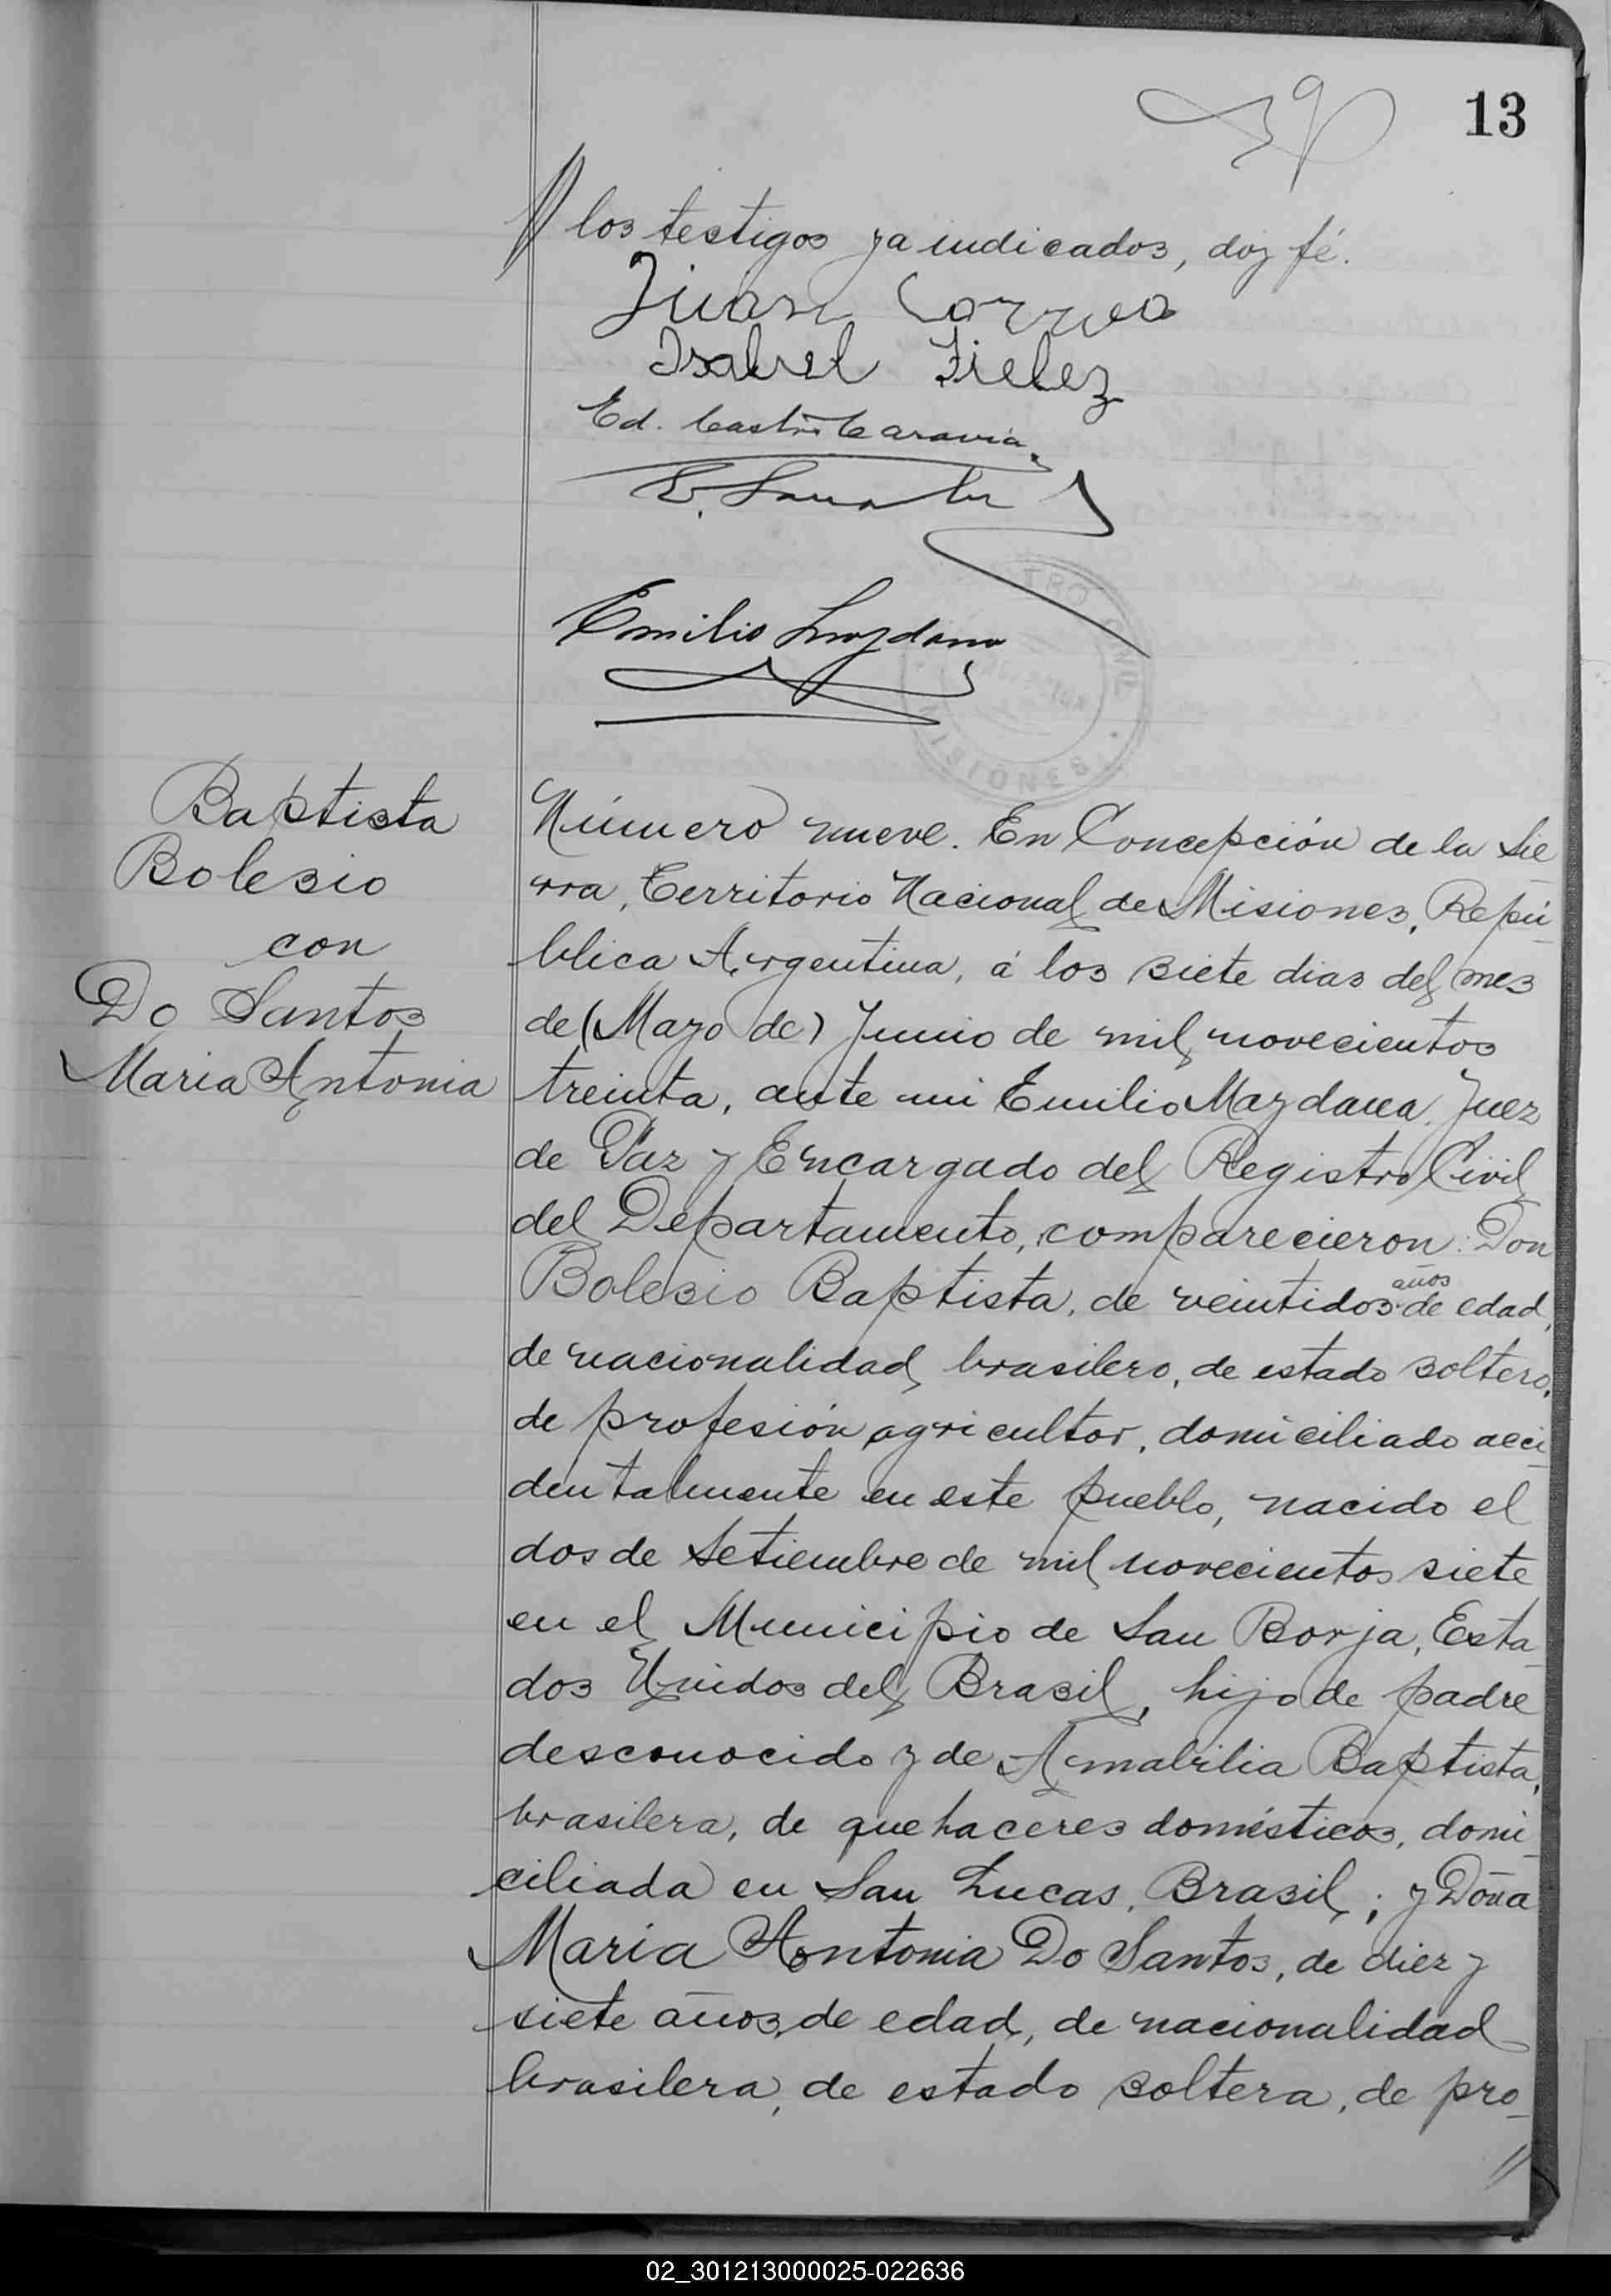 13
// los testigos ya indicados, doy fé.
Juan Correa
Isabel Fielez
Ed. Castro Caravia
Emilio Mazdana
Baptista
Bolesio
con
Do Santos
Maria Antonia
Número nueve. En Concepción de la Sie-
rra, Territorio Nacional de Misiones, Repú-
blica Argentina, á los siete dias del mes
de (Mayo de) Junio de mil novecientos
treinta, ante mi Emilio Mazdana, Juez
de Paz y Encargado del Registro Civil
del Departamento, comparecieron: Don
Bolesio Baptista, de veintidos años de edad,
de nacionalidad brasilero, de estado soltero,
de profesión agricultor, domiciliado acci-
dentalmente en este pueblo, nacido el
dos de Setiembre de mil novecientos siete
en el Municipio de San Borja, Esta-
dos Unidos del Brasil, hijo de padre
desconocido y de Amabilia Baptista,
brasilera, de quehaceres domésticos, domi-
ciliada en San Lucas, Brasil,; y Doña
Maria Antonia Do Santos, de diez y
siete años de edad, de nacionalidad
brasilera, de estado soltera, de pro-
//
02_301213000025-022636